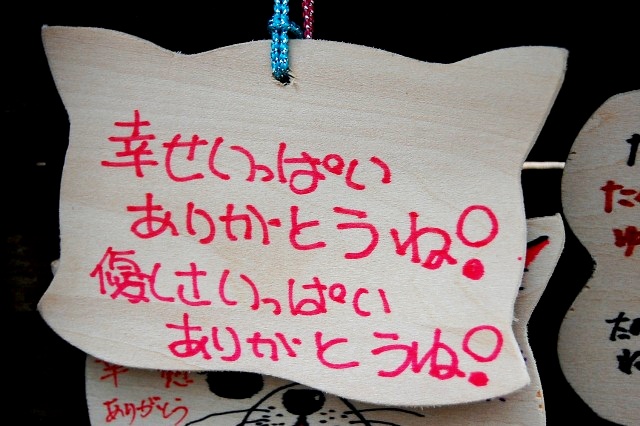 幸せいっぱい
ありがとうね!
優しさいっぱい
ありがとうね!
ありがとう